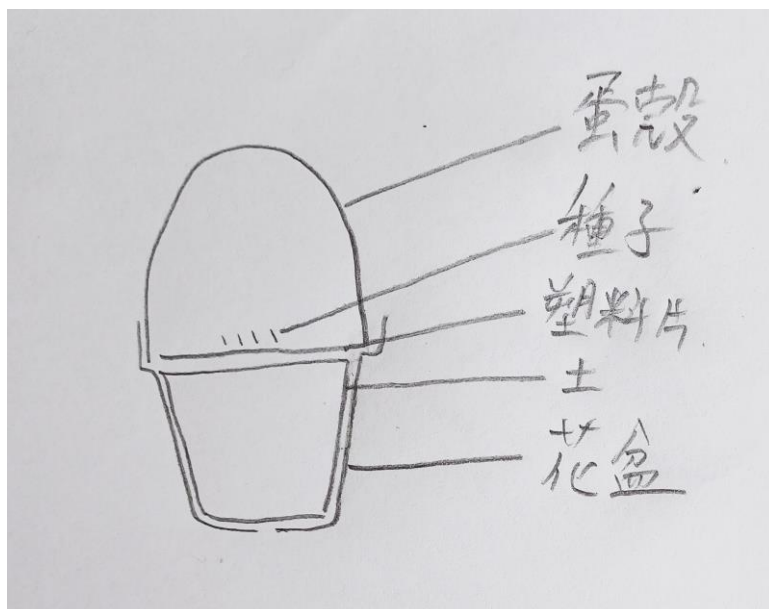 蛋殼
種子
塑料片
土
花盆